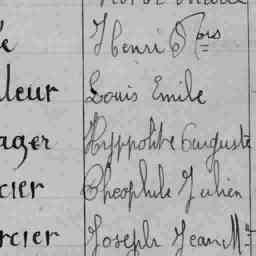 Henri Fois
lleur Louis Emile
ager Hyppolite Auguste
cier Théophile Julien
rcier Joseph Jean M